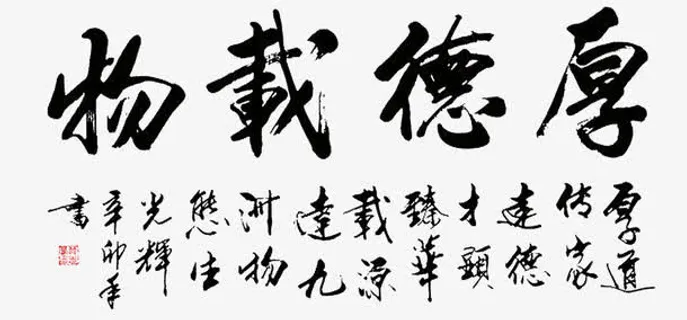 厚德載物
厚道
传家
遠德
才顯
臻華
載源
達九
州物
態生
光輝
辛卯年
書